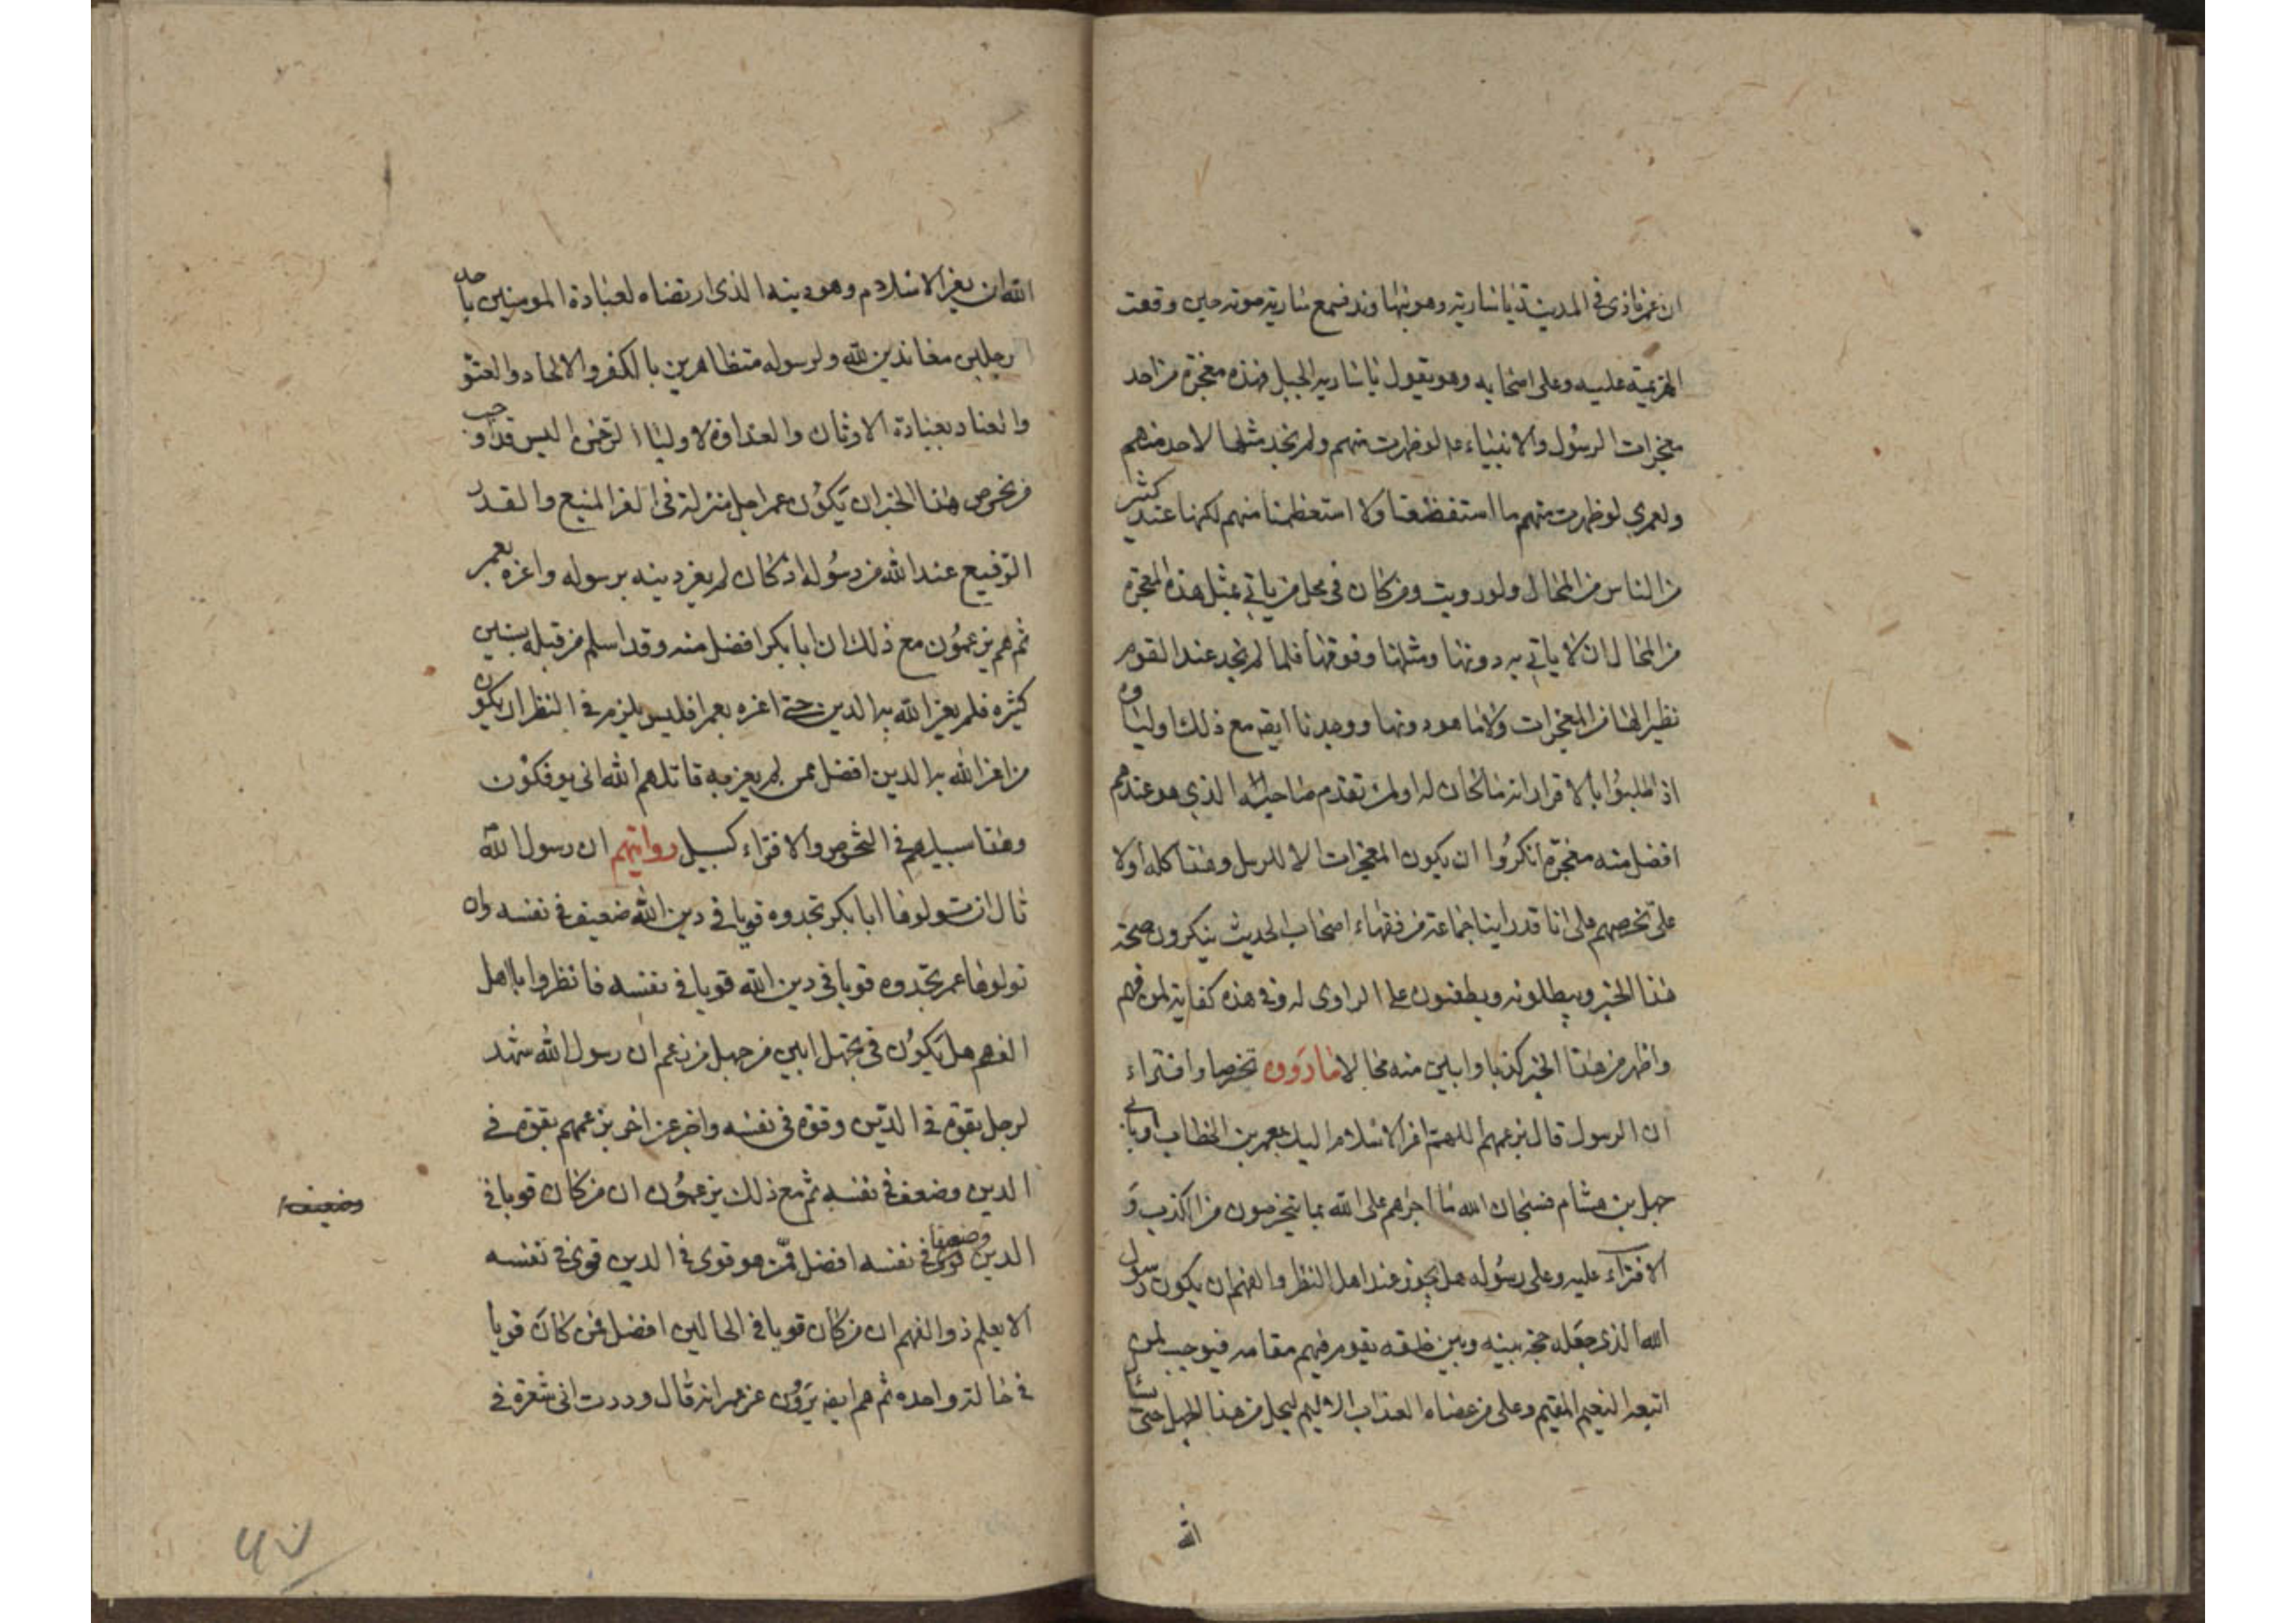 ان عمر نادى في المدينة يا سارية وهو بنهاوند فسمع سارية صوته حين وقعت
الهزيمة عليه وعلى اصحابه وهو يقول يا سارية الجبل فهذه معجزة من احد
معجزات الرسول والانبياء ع لو ظهرت منهم ولم نجد مثلها لاحد منهم
ولعمري لو ظهرت منهم ما استفظعنا ولا استعظمنا منهم لكنها عند كثير
من الناس من المحال ولو رويت ومن كان في محل من ياتي بمثل هذه المعجزة
من المحال ان لا ياتي به دونها ومثلها وفوقها فلما لم نجد عند القوم
نظيرا لها من المعجزات ولا ما هو دونها ووجدنا ايضه مع ذلك اولياوه
اذا طلبوا بالاقرار انه ما كان له او لمن تقدم صاحبه الذي هو عندهم
افضل منه معجزة انكروا ان يكون المعجزات الا للرسل وهذا كله اولا
على تخرصهم على انا قد راينا جماعة من فقهاء اصحاب الحديث ينكرون صحة
هذا الخبر ويبطلونه ويطعنون على الراوى له وفي هذه كفاية لمن فهم
واظهر من هذا الخبر كذبا وابين منه محالا ما رووه تخرصا وافتراء
ان الرسول قال بزعمهم اللهم اعز الاسلام اليك بعمر بن الخطاب او بابي
جهل بن هشام فسبحان الله ما اجراهم على الله بما يتخرصون من الكذب و
الافتراء عليه وعلى رسوله هل يجوز عند اهل النظر والفهم ان يكون رسول
الله الذي جعله حجة بينه وبين خلقه يقوم فيهم مقامه فيوجب لمن
اتبعه النعيم المقيم وعلى من عصاه العذاب الاليم ليجل من هذا الجهل حتى يسال
الله
الله ان يعز الاسلام وهو دينه الذي ارتضاه لعبادة المومنين باحد
رجلين معاندين لله ولرسوله متظاهرين بالكفر والالحاد والعتو
والعناد بعبادة الاوثان والعداوة لاولياء الرحمن اليس قد اوجب
من تخرص هذا الخبر ان يكون عمر اجل منزلة في العز المنيع والقدر
الرفيع عند الله من رسوله اذ كان لم يعز دينه برسوله واعزه بعمر
ثم هم يزعمون مع ذلك ان ابا بكر افضل منه وقد اسلم من قبله بسنين
كثيره فلم يعز الله به الدين حتى اعزه بعمر افليس يلزم في النظر ان يكون
من اعز الله به الدين افضل ممن لم يعز به قاتلهم الله انى يوفكون
وهذا سبيلهم في التخرص والافتراء كسبيل روايتهم ان رسول الله
قال ان تولوها ابا بكر تجدوه قويا في دين الله ضعيف في نفسه وان
تولوها عمر تجدوه قويا في دين الله قويا في نفسه فانظروا يا اهل
الفهم هل يكون في جهل ابين من جهل من زعم ان رسول الله شهد
لرجل بقوة في الدين وقوة في نفسه واخبر عن اخر بزعمهم بقوة في
الدين وضعف في نفسه ثم مع ذلك يزعمون ان من كان قويا في
الدين وضعيفا في نفسه افضل ممن هو قوى في الدين قوى في نفسه
وضعيف
الا يعلم ذو الفهم ان من كان قويا في الحالين افضل ممن كان قويا
في حالة واحده ثم هم ايضه يروون عن عمر انه قال وددت انى شعرة في